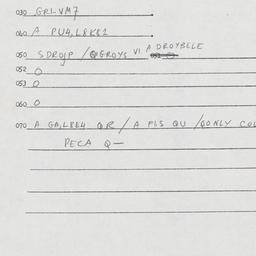 030 GRL-VM7
040 A PU4, L8K82
050 SDROJP / QGROYS VI A DROYBELE
052 O
053 O
060 O
070 A GA, L884 QR / A FLS QU / GONLY COL
PECA Q—